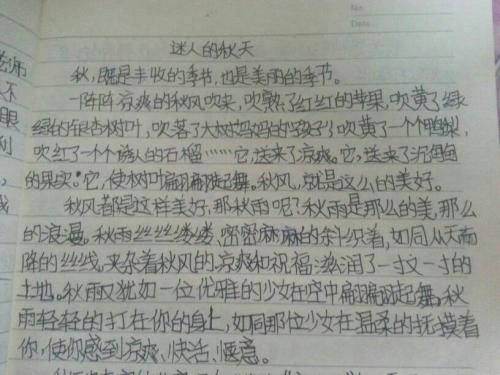 No.
Date
迷人的秋天
秋,既是丰收的季节,也是美丽的季节。
一阵阵凉爽的秋风吹来,吹熟了红红的苹果,吹黄了绿
绿的银杏树叶,吹落了大树妈妈的"孩子",吹黄了一个个鸭梨,
吹红了一个个诱人的石榴……它,送来了凉爽。它,送来了沉甸甸
的果实。它,使树叶翩翩起舞。秋风,就是这么的美好。
秋风都是这样美好,那秋雨呢?秋雨是那么的美,那么
的浪漫。秋雨丝丝缕缕、密密麻麻的斜织着,如同从天而
降的丝线,夹杂着秋风的凉爽和祝福,滋润了一寸又一寸的
土地。秋雨又犹如一位优雅的少女在空中翩翩起舞。秋
雨轻轻的打在你的身上,如同那位少女在温柔的抚摸着
你,使你感到凉爽、快活、惬意。